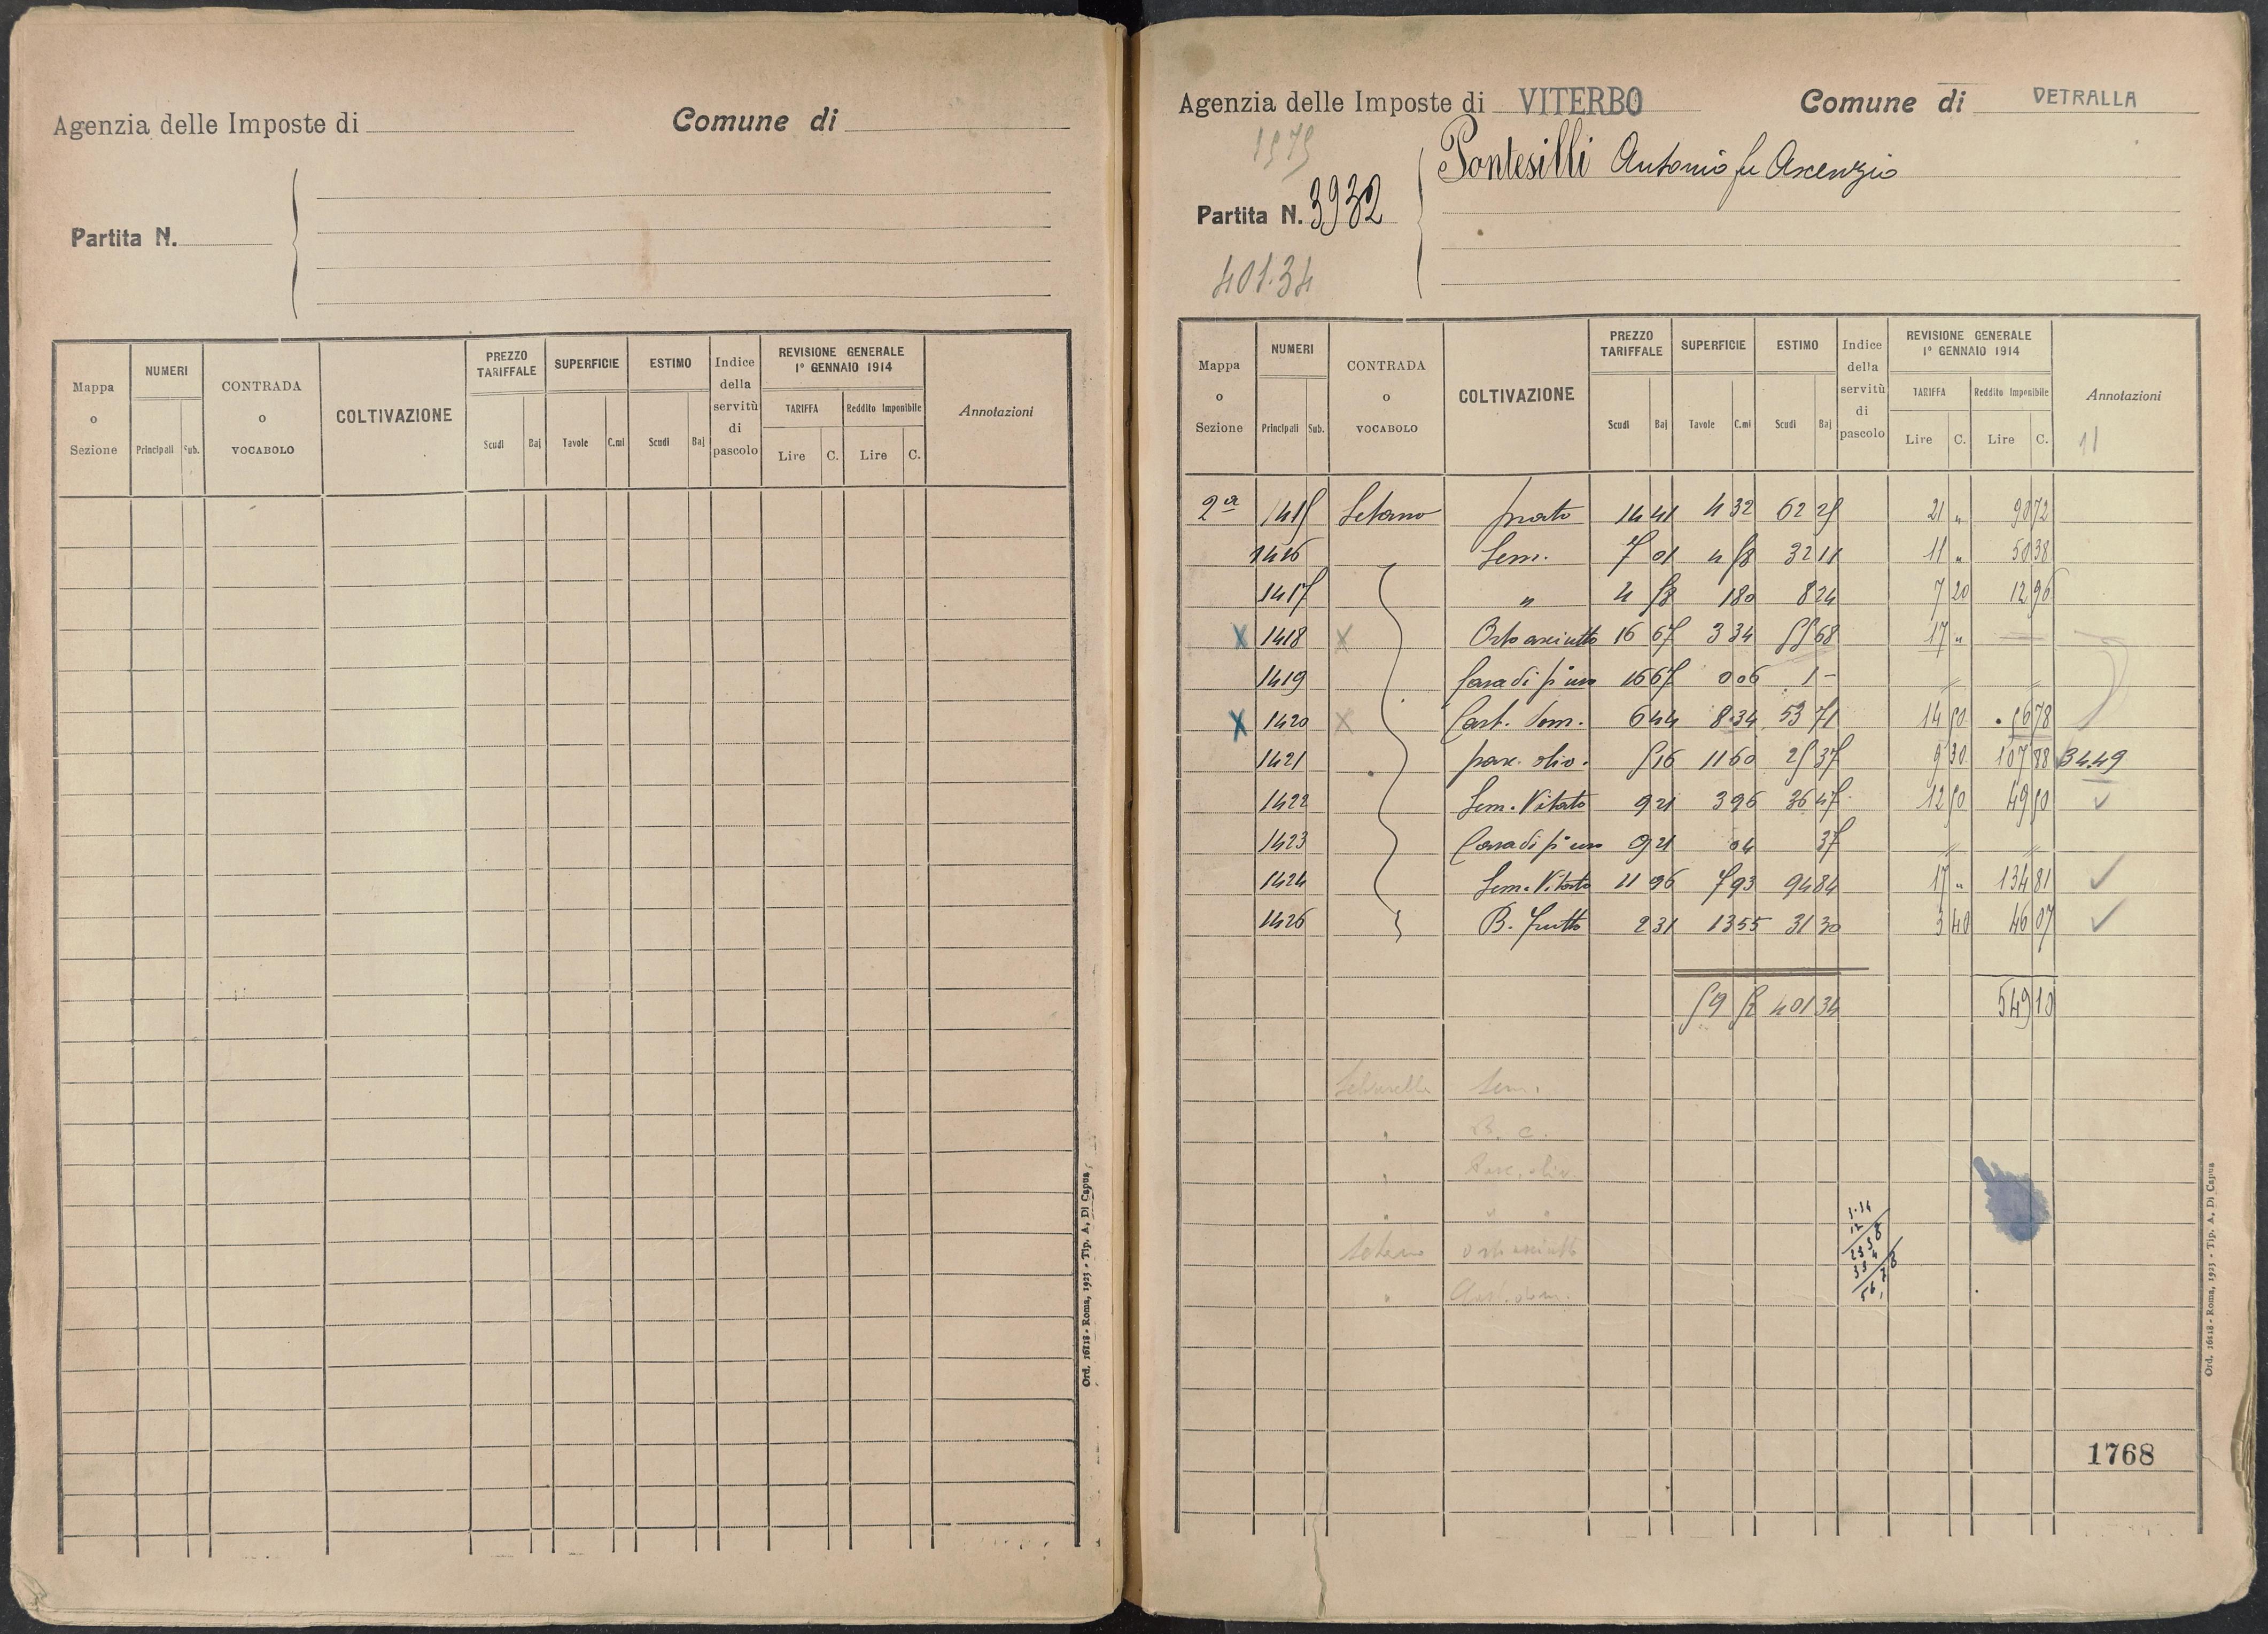 Agenzia delle Imposte di
Comune di
Partita N.
Mappa o Sezione
NUMERI
Principali Sub.
CONTRADA o VOCABOLO
COLTIVAZIONE
PREZZO TARIFFALE
Scudi Baj
SUPERFICIE
Tavole C.mi
ESTIMO
Scudi Baj
Indice della servitù di pascolo
REVISIONE GENERALE 1° GENNAIO 1914
TARIFFA
Lire C.
Reddito Imponibile
Lire C.
Annotazioni
Ord. 16118 - Roma, 1923 - Tip. A. Di Capua
Agenzia delle Imposte di VITERBO
Comune di VETRALLA
Partita N. 3932
Pontesilli Antonio fu Ascenzio
401.34
Mappa o Sezione
NUMERI
Principali Sub.
CONTRADA o VOCABOLO
COLTIVAZIONE
PREZZO TARIFFALE
Scudi Baj
SUPERFICIE
Tavole C.mi
ESTIMO
Scudi Baj
Indice della servitù di pascolo
REVISIONE GENERALE 1° GENNAIO 1914
TARIFFA
Lire C.
Reddito Imponibile
Lire C.
Annotazioni
11
2ª 1415 prato 14 41 4 32 62 25 21 " 90 72
1416 Sem. 7 01 4 58 32 11 11 " 50 38
1417 " 4 58 1 80 8 24 7 20 12 96
X 1418 X Orto asciutto 16 67 3 34 55 68 17 "
1419 Casa di pº uso 16 67 0 06 1 -
X 1420 X Cast. dom. 6 44 8 34 53 71 14 50 56 78
1421 pasc. oliv. 5 16 11 60 25 37 9 30 107 88 34.49
1422 Sem. Vitato 9 21 3 96 36 47 12 50 49 50
1423 Casa di pº uso 9 21 04 37
1424 Sem. Vitato 11 96 7 93 94 84 17 " 134 81
1426 B. frutto 2 31 13 55 31 30 3 40 46 07
59 52 401 34 549 10
Sem.
B. c.
Pasc. oliv.
Orto asciutto
1768
Ord. 16118 - Roma, 1923 - Tip. A. Di Capua